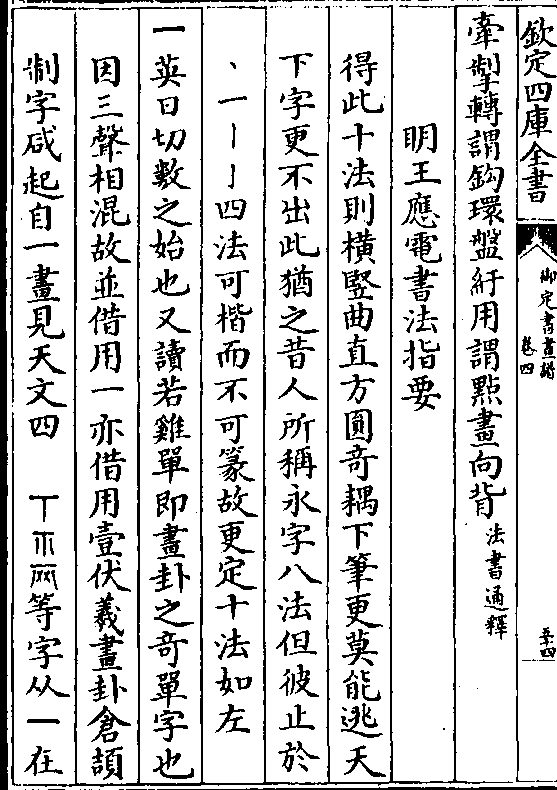 欽定四庫全書
御定書畫譜
卷四
至四
牽掣轉謂鈎環盤紆用謂㸃畫向背法書通釋
明王應電書法指要
得此十法則橫豎曲直方圓竒耦下筆更莫能逃天
下字更不出此猶之昔人所稱永字八法但彼止於
丶一丨亅四法可楷而不可篆故更定十法如左
一英日切數之始也又讀若雞單即畫卦之竒單字也
因三聲相混故並借用一亦借用壹伏羲畫卦倉頡
制字咸起自一畫見天文四 丅𠕲兩等字从一在